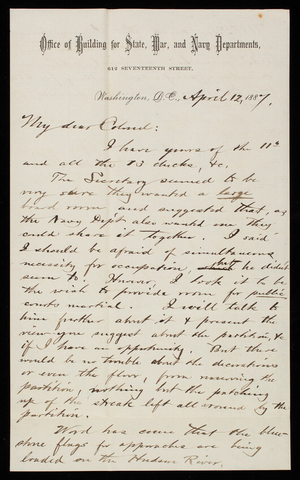 Office of Building for State, War, and Navy Departments,
613 SEVENTEENTH STREET,
Washington, D.C., April 12, 1887.
My dear Colonel:
I have yours of the 11th
and all the 13 checks, &c.
The Secretary seemed to be
very sure they wanted a large
board room and suggested that, as
the Navy Dept. also wanted one, they
could share it together. I said
I should be afraid of simultaneous
necessity for occupation, but he didn't
seem to. However, I took it to be
the wish to provide room for public
courts martial. I will talk to
him further about it & present the
view you suggest about the partition, &c
if I have an opportunity. But there
would be no trouble about the decorations
or even the floor, from removing the
partition, nothing but the patching
up of the streak left all around by the
partition.
Word has come that the blue-
stone flags for approaches are being
loaded on the Hudson River,